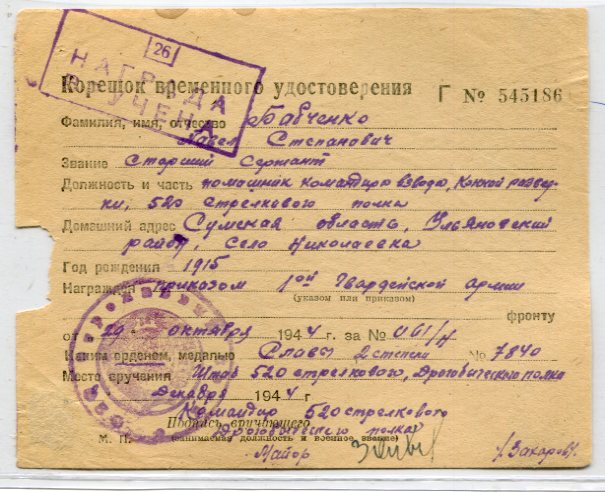 26
НАГРАДА
ВРУЧЕНА
Корешок временного удостоверения Г № 545186
Фамилия, имя, отчество Бабченко
Павел Степанович
Звание Старший Сержант
Должность и часть помошник командира взвода, Конной развед-
ки, 520 стрелкового полка
Домашний адрес Сумская область, Ульяновский
район, село Николаевка
Год рождения 1915
Награжден приказом 1ой Гвардейской армии
(указом или приказом)
фронту
от 20 октября 1944 г. за № 061/н
Каким орденем, медалью Слава 2 степени № 7840
Место вручения Штаб 520 стрелкового, Дрогобического полка
Декабря 1944 г
Командир 520 стрелкового
Подпись вручающего
Дрогобического полка
М. П. (занимаемая должность и военное звание)
Майор /Захаров/.